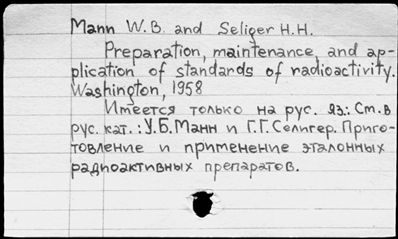 Mann W.B. and Seliger H.H.
Preparation, maintenance, and ap-
plication of standards of radioactivity.
Washington, 1958
Имеется только на рус. яз.: См. в
рус. кат.: У.Б. Манн и Г.Г. Селигер. Приго-
товление и применение эталонных
радиоактивных препаратов.